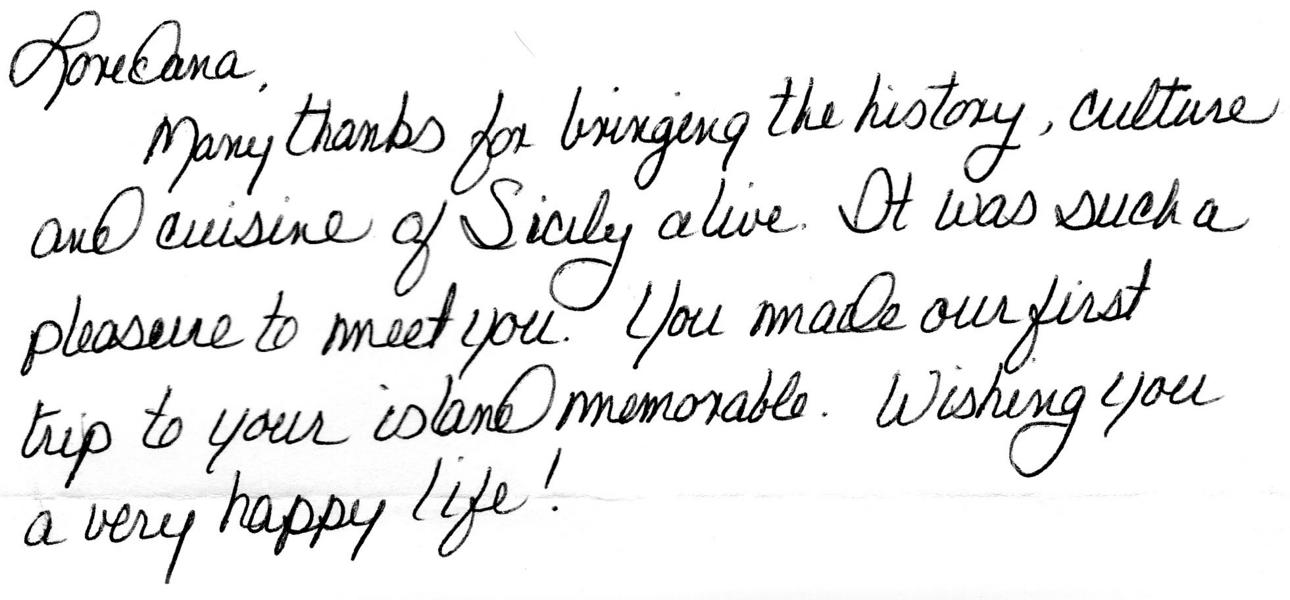 Loredana,
Many thanks for bringing the history, culture
and cuisine of Sicily alive. It was such a
pleasure to meet you. You made our first
trip to your island memorable. Wishing you
a very happy life!